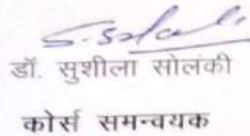 डॉ. सुशीला सोलंकी
कोर्स समन्वयक